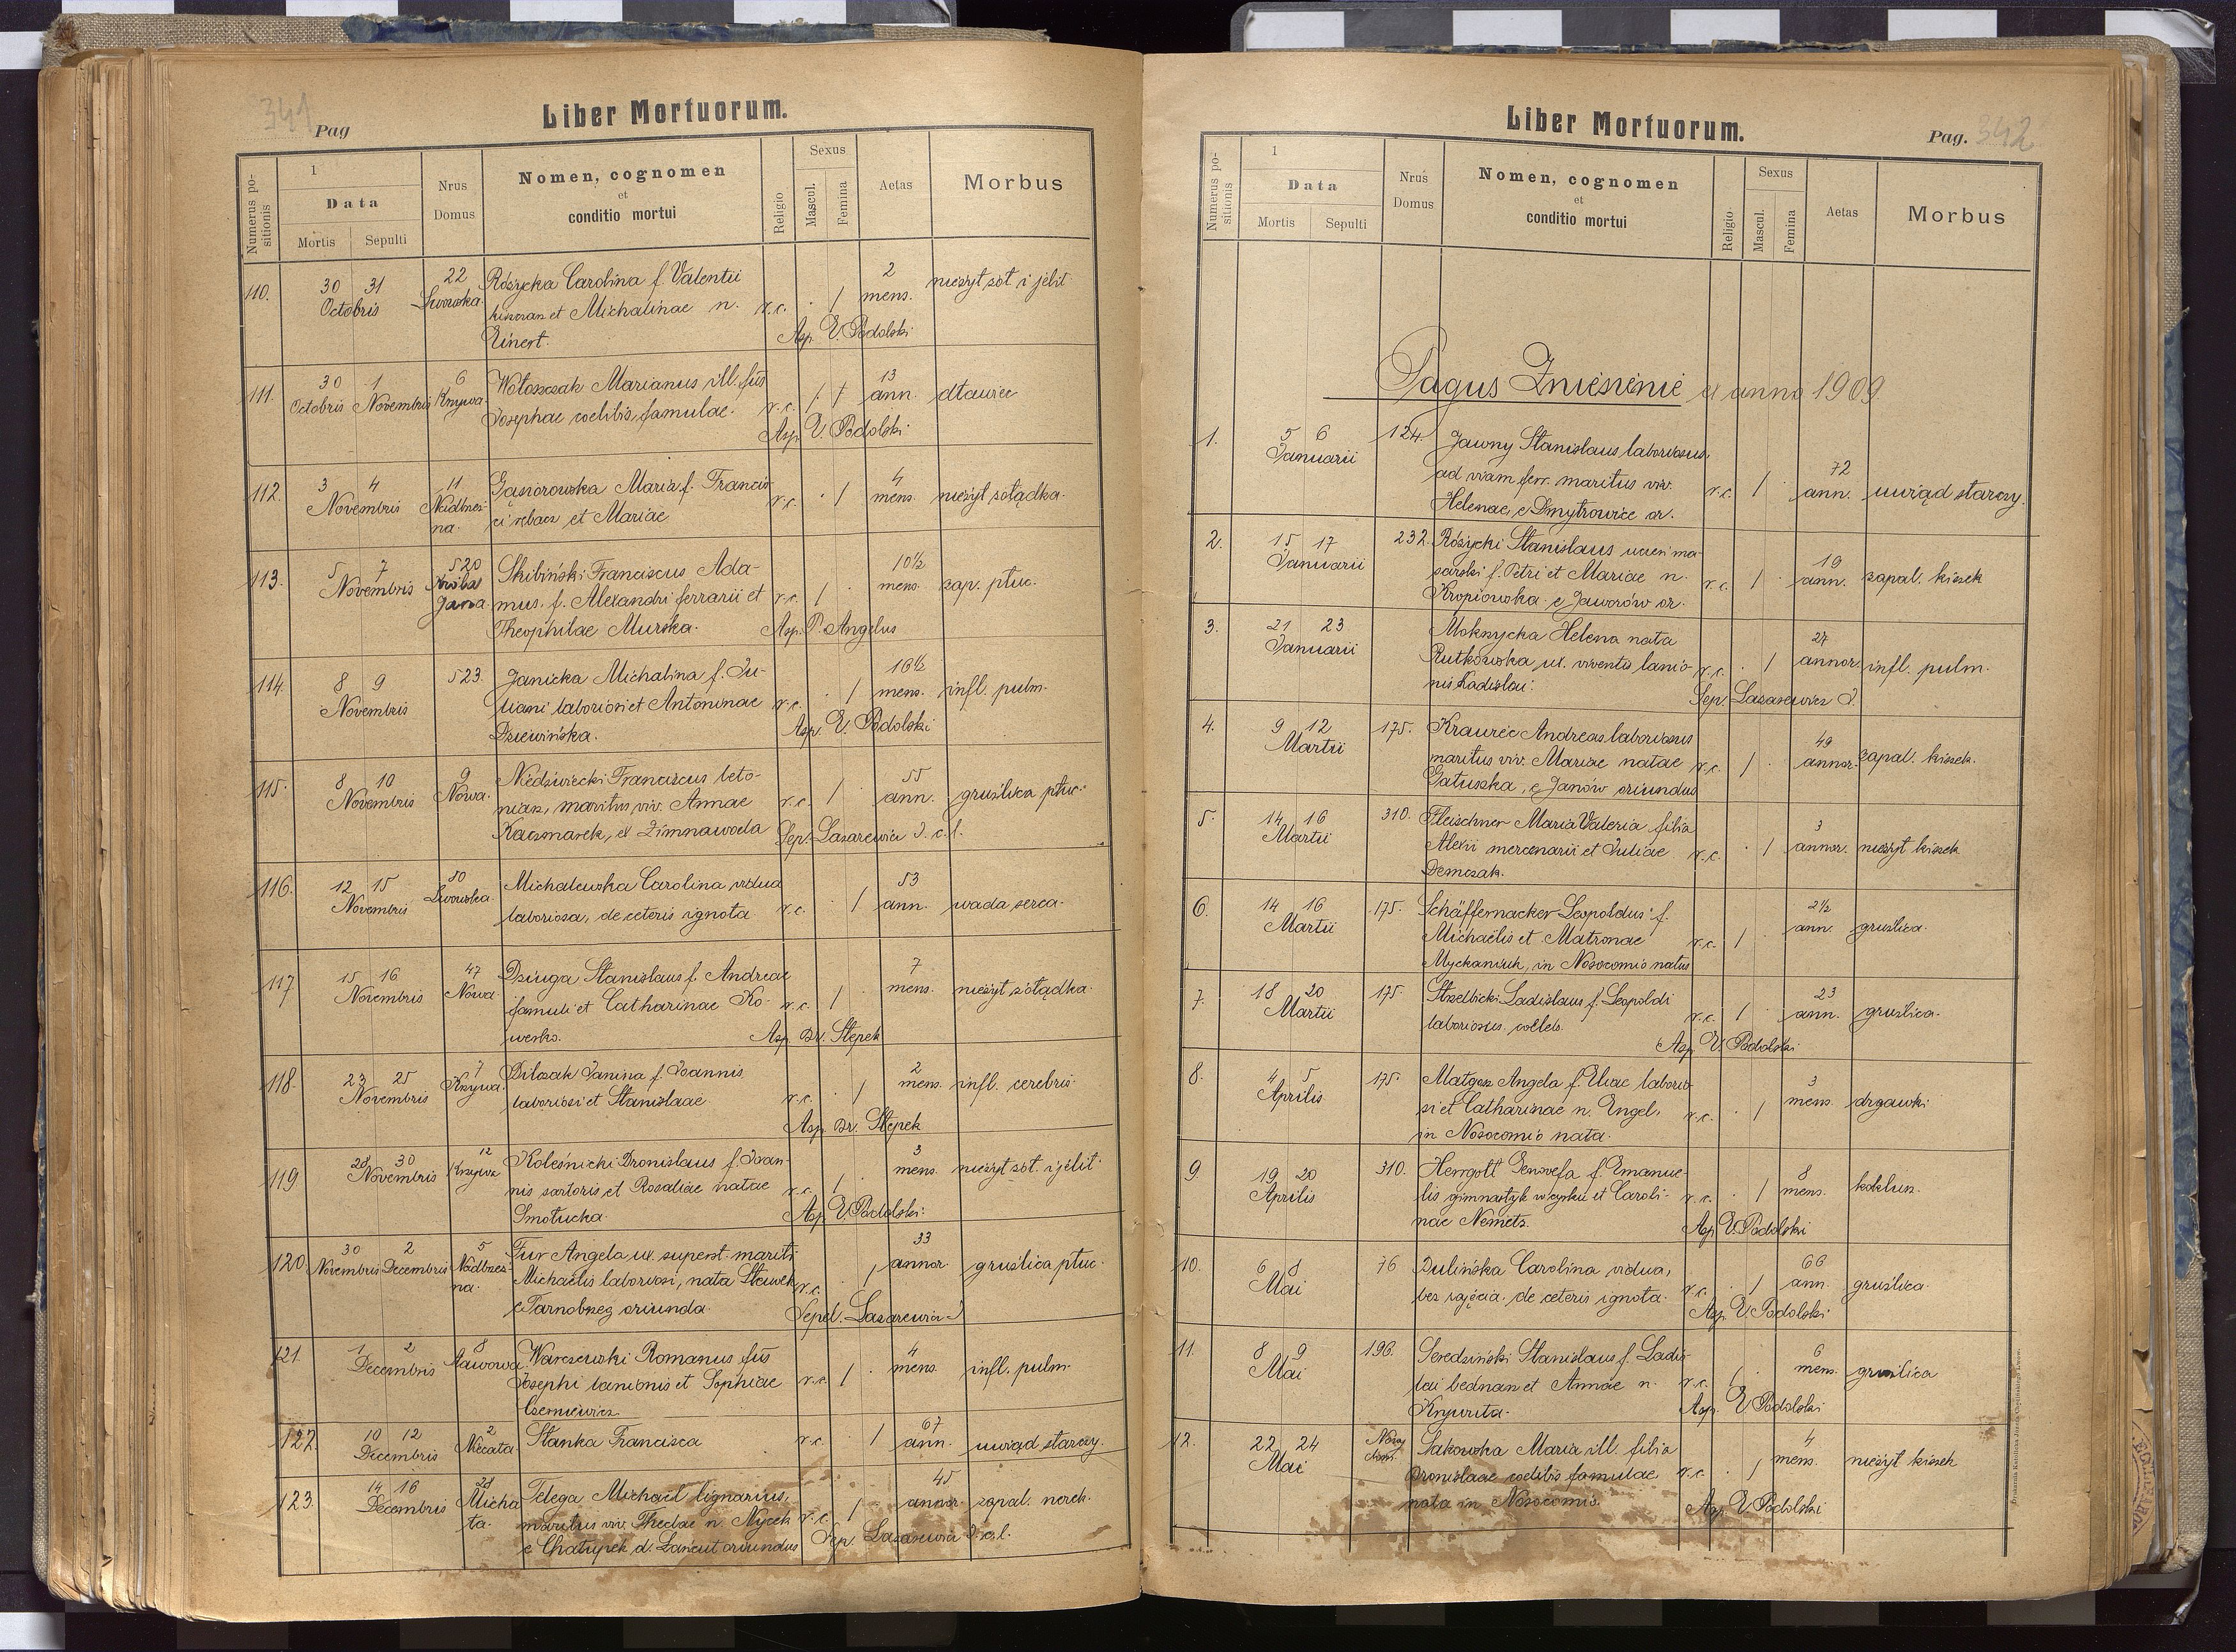 341
Pag
Liber Mortuorum.
Numerus positionis
1
Data
Mortis Sepulti
Nrus Domus
Nomen, cognomen
et
conditio mortui
Religio
Sexus
Mascul. Femina
Aetas
Morbus
110. 30 31 Octobris 22 Lwowska
Różycka Carolina f. Valentii
et Michalinae n. r.c. / 2 mens. nieżyt żoł. i jelit
Einert. Asp. V. Podolski
111. 30 Octobris 1 Novembris 6 Krzywa
Wołoszczak Marianus ill. fus
Josephae coelibis, famulae. r.c. / 13 ann. dławiec
Asp. V. Podolski
112. 3 4 Novembris 11 Nadbrzeżna
Gąsiorowska Maria f. Francis-
ci et Mariae r.c. / 4 mens. nieżyt żołądka.
113. 5 7 Novembris 520
Skibiński Franciscus Ada-
mus. f. Alexandri ferrarii et r.c. / 10½ mens. zap. płuc.
Theophilae Murska. Asp. P. Angelus
114. 8 9 Novembris 523.
Janicka Michalina f. Ju-
liani laboriosi et Antoninae r.c. / 16½ mens. infl. pulm.
Dziewińska. Asp. V. Podolski
115. 8 10 Novembris 9 Nowa.
Niedźwiecki Franciscus beto-
niarz, maritus viv. Annae r.c. / 55 ann. gruźlica płuc.
Kaczmarek, ex Zimnawoda Sep. Lazarewicz J. c.l.
116. 12 15 Novembris 50 Lwowska
Michalewska Carolina vidua
laboriosa, de ceteris ignota r.c. / 53 ann. wada serca.
117 15 16 Novembris 47 Nowa
Dziuga Stanislaus f. Andreae
famuli et Catharinae Ko- r.c. / 7 mens. nieżyt żołądka.
werko. Asp. Dr. Stepek
118. 23 25 Novembris 7 Krzywa
Bilczak Janina f. Joannis
laboriosi et Stanislaae r.c. / 2 mens. infl. cerebris
Asp. Dr. Stepek
119 28 30 Novembris 12 Krzywa
Koleśnicki Bronislaus f. Joan-
nis sartoris et Rosaliae natae r.c. / 3 mens. nieżyt żoł. i jelit.
Smołucka. Asp. V. Podolski.
120. 30 Novembris 2 Decembris 5 Nadbrzeżna.
Fur Angela ux. superst. mariti
Michaelis laboriosi, nata r.c. / 33 annor. gruźlica płuc.
e Tarnobrzeg oriunda. Sepel. Lazarewicz J
121. 1 2 Decembris 8 Stawowa
Warczewski Romanus fus
Josephi lanionis et Sophiae r.c. / 4 mens. infl. pulm.
Czerniewicz.
122. 10 12 Decembris 2
Stanka Francisca r.c. / 67 ann. uwiąd starczy.
123. 14 16 Decembris 28
Telega Michael lignarius,
maritus viv. Theclae n. Mycek r.c. / 45 annor. zapal. nerek.
e Chałupek d. Łańcut oriundus Sep. Lazarewicz J. c.l.
Liber Mortuorum.
Pag. 342
Numerus positionis
1
Data
Mortis Sepulti
Nrus Domus
Nomen, cognomen
et
conditio mortui
Religio
Sexus
Mascul. Femina
Aetas
Morbus
Pagus Zniesienie ex anno 1909
1. 5 6 Januarii 124.
Jawny Stanislaus laboriosus,
ad viam ferr. maritus viv. r.c. / 72 ann. uwiąd starczy.
Helenae, e Dmytrowice or.
2. 15 17 Januarii 232.
Różycki Stanislaus uczeń ma-
sarski f. Petri et Mariae n. r.c. / 19 ann. zapal. kiszek
Kropiowska. e Jaworów or.
3. 21 23 Januarii
Mokrzycka Helena nata
Rutkowska, ux. viventis lanio- r.c. / 27 annor. infl. pulm.
nis Ladislai. Sep. Lazarewicz J.
4. 9 12 Martii 175.
Krawiec Andreas laboriosus
maritus viv. Mariae natae r.c. / 49 annor. zapal. kiszek.
Gatuszka, e Janów oriundus
5. 14 16 Martii 310.
Fleischner Maria Valeria filia
Alexii mercenarii et Juliae r.c. / 3 annor. nieżyt kiszek
Demczak.
6. 14 16 Martii 175.
Schäffernacker Leopoldus f.
Michaëlis et Matronae r.c. / 2½ ann. gruźlica.
Myckaniuk, in Nosocomio natus
7. 18 20 Martii 175
Strzelbicki Ladislaus f. Leopoldi
laboriosus. coelebs. r.c. / 23 ann. gruźlica.
Asp. V. Podolski
8. 4 5 Aprilis 175.
Małgosz Angela f. Lucae laborio-
si et Catharinae n. Engel, r.c. / 3 mens. drgawki
in Nosocomio nata.
9. 19 20 Aprilis 310.
Herrgott Genovefa f. Emanue-
lis gimnastyk w cyrku et Caroli- r.c. / 8 mens. koklusz.
nae Nemetz. Asp. V. Podolski
10. 6 8 Mai 76
Dulińska Carolina vidua,
bez zajęcia. de ceteris ignota. r.c. / 66 ann. gruźlica.
Asp. V. Podolski
11. 8 9 Mai 196.
Seredziński Stanislaus f. Ladis-
lai bednarz et Annae n. r.c. / 6 mens. gruźlica
Krywita. Asp. V. Podolski
12. 22 24 Mai
Sakowska Maria ill. filia
Bronislaae coelibis famulae r.c. / 4 mens. nieżyt kiszek
nata in Nosocomio. Asp. V. Podolski